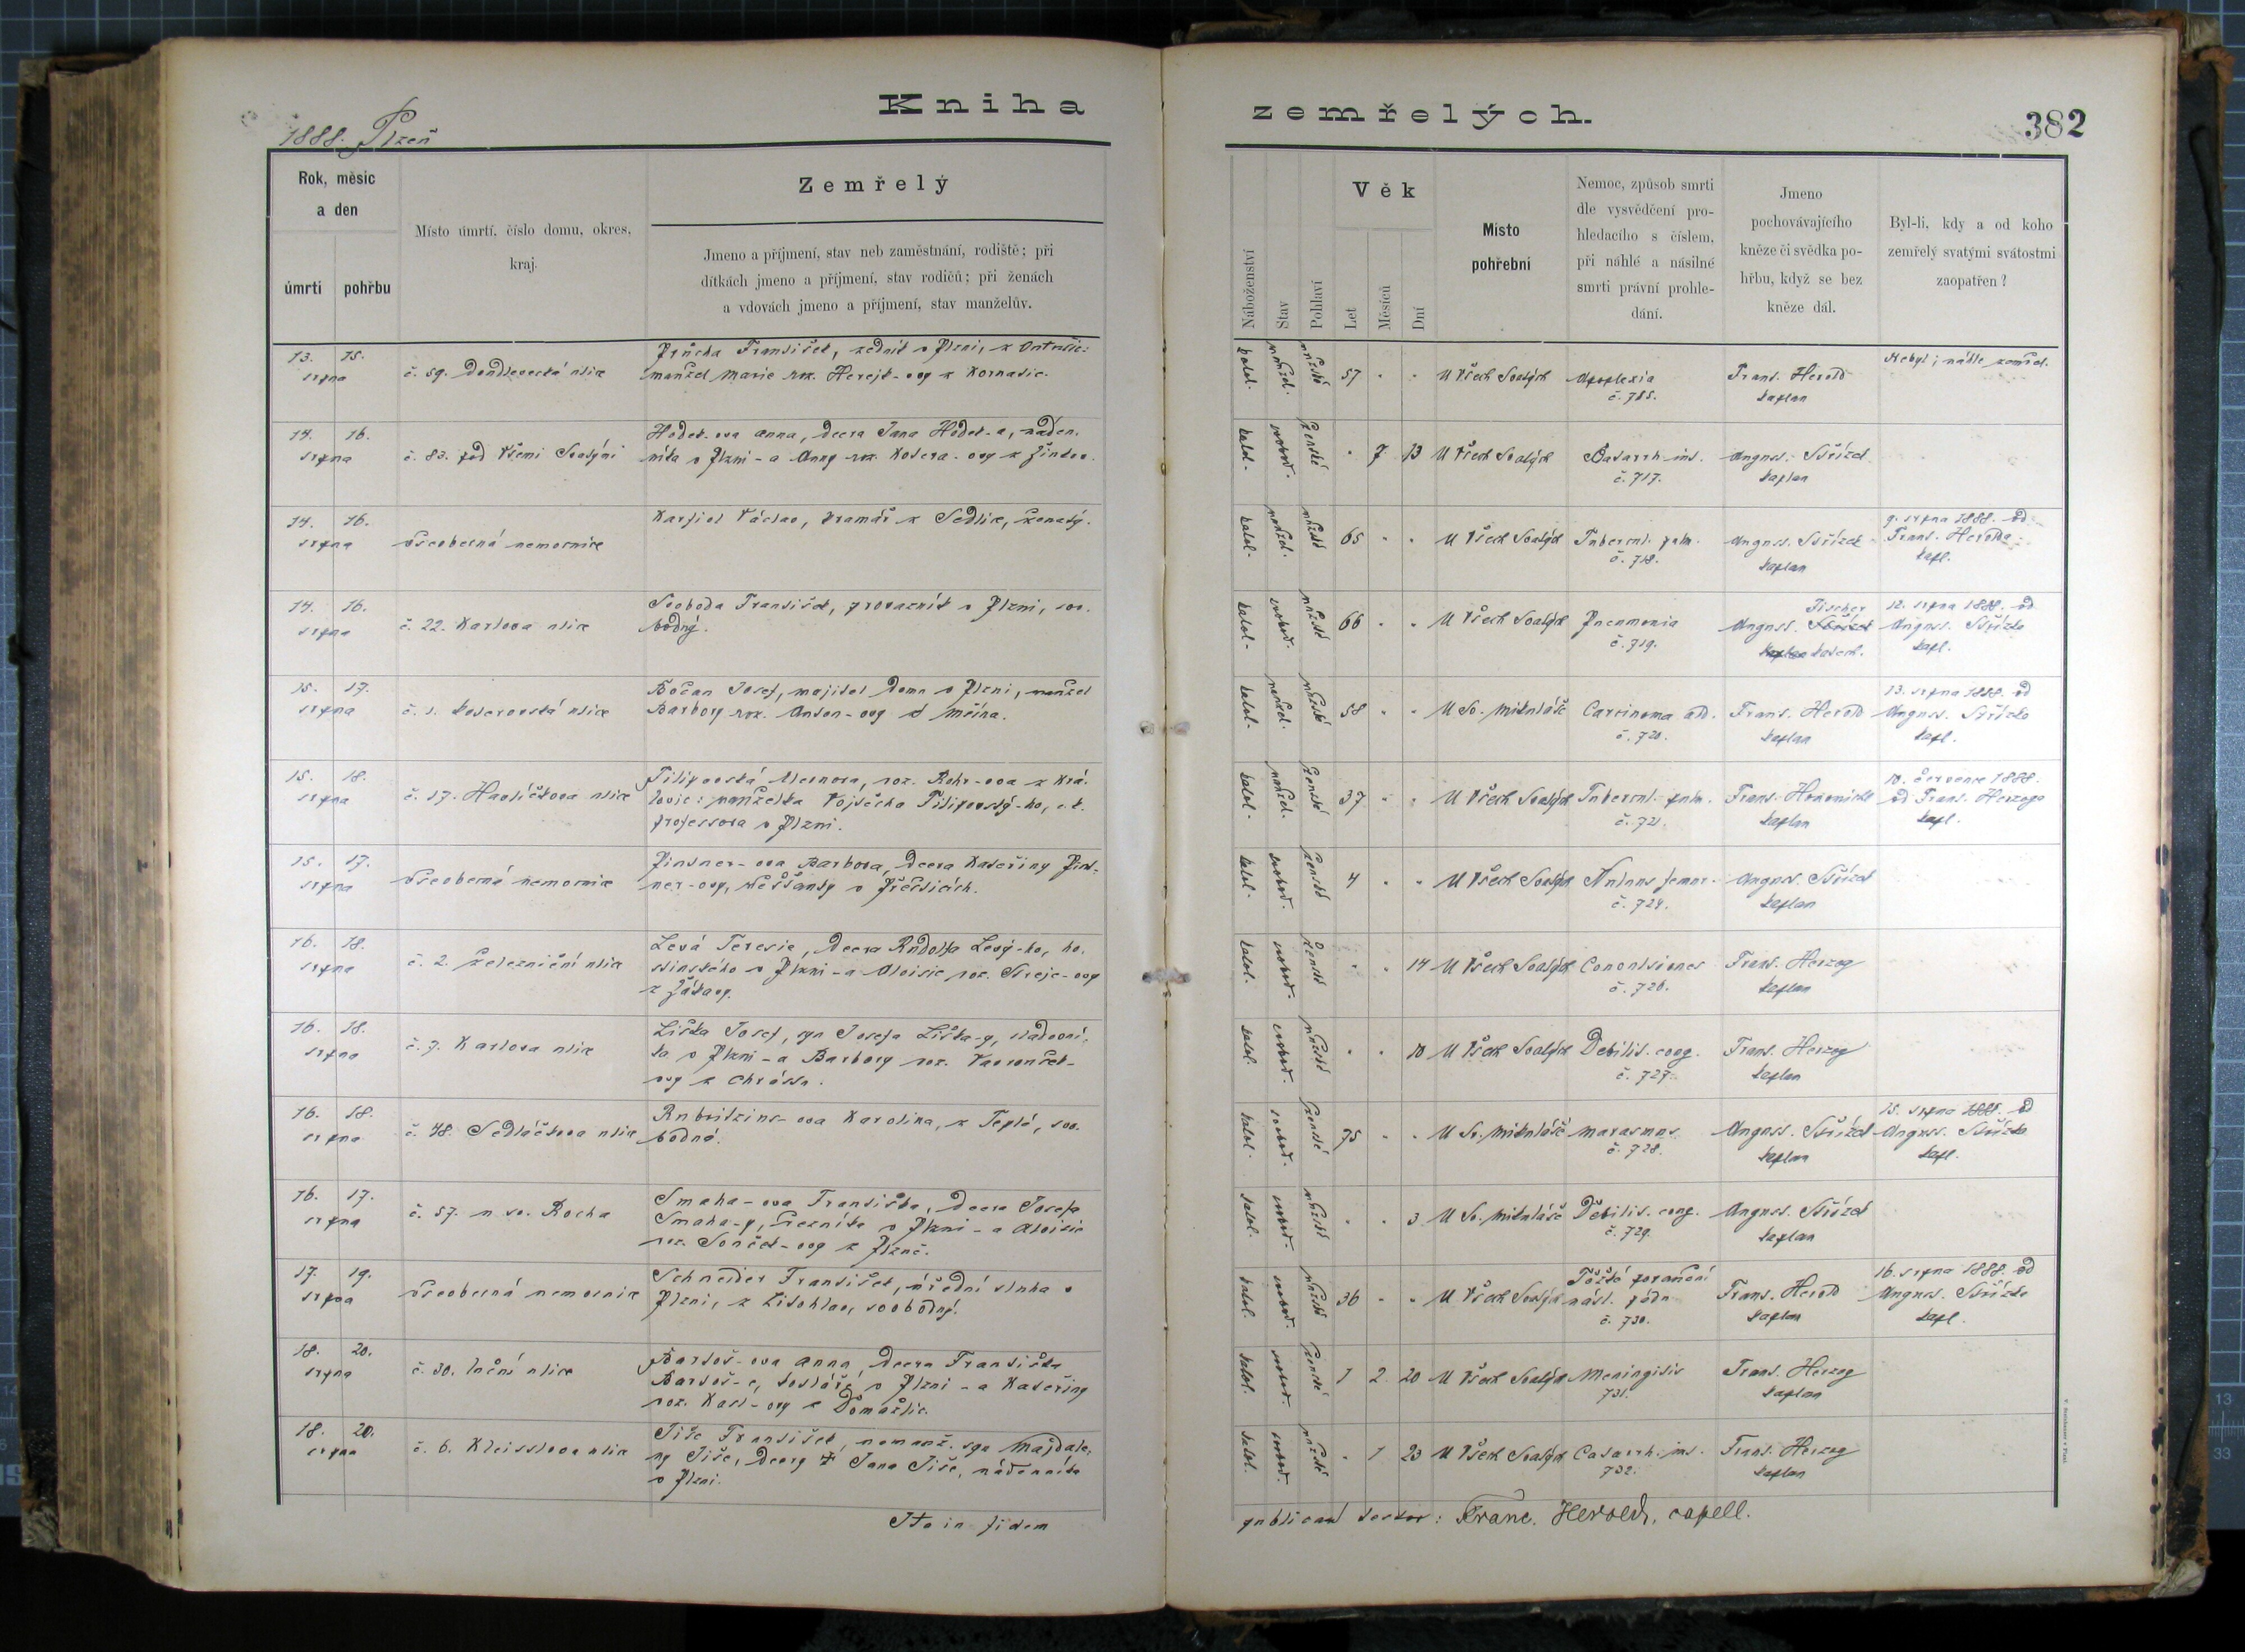 Kniha
1888. Plzeň
Rok, měsíc
a den
úmrtí
pohřbu
Místo úmrtí, číslo domu, okres,
kraj.
Zemřelý
Jmeno a příjmení, stav neb zaměstnání, rodiště; při
dítkách jmeno a příjmení, stav rodičů; při ženách
a vdovách jmeno a příjmení, stav manželův.
13. 15.
srpna
č. 59. Doudlevecká ulice
Průcha František, zedník v Plzni,
manžel Marie roz.
14. 16.
srpna
č. 83. pod Všemi Svatými
Hodek-ova Anna, dcera Jana Hodek-a, náden-
níka v Plzni - a Anny roz.
14. 16.
srpna
Všeobecná nemocnice
Karfiol Václav, kramář z Sedlic, ženatý.
14. 16.
srpna
č. 22. Karlova ulice
Svoboda František, provazník v Plzni, svo-
bodný.
15. 17.
srpna
č. 1. Koterovská ulice
Bočan Josef, majitel domu v Plzni, manžel
Barbory roz. Anton-ovy
15. 18.
srpna
č. 17. Havlíčkova ulice
Filipovská Eleonora, roz. Rohr-ova z Krá-
lovic: manželka Vojtěcha Filipovský-ho, c. k.
professora v Plzni.
15. 17.
srpna
Všeobecná nemocnice
Pintner-ova Barbora, dcera Kateřiny Pint-
ner-ovy, v Přešticích.
16. 18.
srpna
č. 2. Železniční ulice
Levá Teresie, dcera Rudolfa Levý-ho, ho-
stinského v Plzni - a Aloisie roz.
16. 18.
srpna
č. 7. Karlova ulice
Liška Josef, syn Josefa Liška-y,
v Plzni - a Barbory roz. Vavroušek-
ovy z Chrástu.
16. 18.
srpna
č. 48. Sedláčkova ulice
Karolina, z Teplé, svo-
bodná.
16. 17.
srpna
č. 57. u sv. Rocha
Smaha-ova Františka, dcera Josefa
Smaha-y, řezníka v Plzni - a Aloisie
roz. Souček-ovy z Plzně.
17. 19.
srpna
Všeobecná nemocnice
Schneider František, úřední sluha v
Plzni, z Litohlav, svobodný.
18. 20.
srpna
č. 30. ulice
Bartoš-ova Anna, dcera Františka
Bartoš-e, kotláře v Plzni - a Kateřiny
roz. z Domažlic.
18. 20.
srpna
č. 6. Kleisslova ulice
Tiše František, nemanž. syn Majdale-
ny Tiše, dcery † Jana Tiše, nádenníka
v Plzni.
Ita in fidem
zemřelých.
382
Náboženství
Stav
Pohlaví
Věk
Let
Měsíců
Dní
Místo
pohřební
Nemoc, způsob smrti
dle vysvědčení pro-
hledacího s číslem,
při náhlé a násilné
smrti právní prohle-
dání.
Jmeno
pochovávajícího
kněze či svědka po-
hřbu, když se bez
kněze dál.
Byl-li, kdy a od koho
zemřelý svatými svátostmi
zaopatřen?
katol. manžel. mužské 57 U Všech Svatých Apoplexia Frant. Herold Nebyl; náhle zemřel.
č. 715. kaplan
katol. svobod. ženské 7 13 U Všech Svatých Catarrh. int. August. Střízek
č. 717. kaplan
katol. manžel. mužské 65 U Všech Svatých Tubercul. pulm. August. Střízek 9. srpna 1888. od
č. 718. kaplan Frant. Herolda
kapl.
katol. svobod. mužské 66 U Všech Svatých Pneumonia August. Fischer 12. srpna 1888. od
č. 719. katech. August. Střízka
kapl.
katol. manžel. mužské 58 U Sv. Mikuláše Carcinoma Frant. Herold 13. srpna 1888. od
č. 720. kaplan August. Střízka
kapl.
katol. manžel. ženské 37 U Všech Svatých Tubercul. pulm. Frant. 10. července 1888.
č. 721. kaplan od Frant. Herzoga
kapl.
katol. svobod. ženské 4 U Všech Svatých August. Střízek
č. 724. kaplan
katol. svobod. ženské 14 U Všech Svatých Convulsiones Frant. Herzog
č. 726. kaplan
katol. svobod. mužské 10 U Všech Svatých Debilit. cong. Frant. Herzog
č. 727. kaplan
katol. svobod. ženské 75 U Sv. Mikuláše Marasmus August. Střízek 15. srpna 1888. od
č. 728. kaplan August. Střízka
kapl.
katol. svobod. mužské 3 U Sv. Mikuláše Debilit. cong. August. Střízek
č. 729. kaplan
katol. svobod. mužské 36 U Všech Svatých Těžké poranění Frant. Herold 16. srpna 1888. od
násl. pádu kaplan August. Střízka
č. 730. kapl.
katol. svobod. ženské 1 2 20 U Všech Svatých Meningitis Frant. Herzog
731. kaplan
katol. svobod. mužské 1 23 U Všech Svatých Catarrh. int. Frant. Herzog
732. kaplan
publicam testor: Franc. Herold, capell.